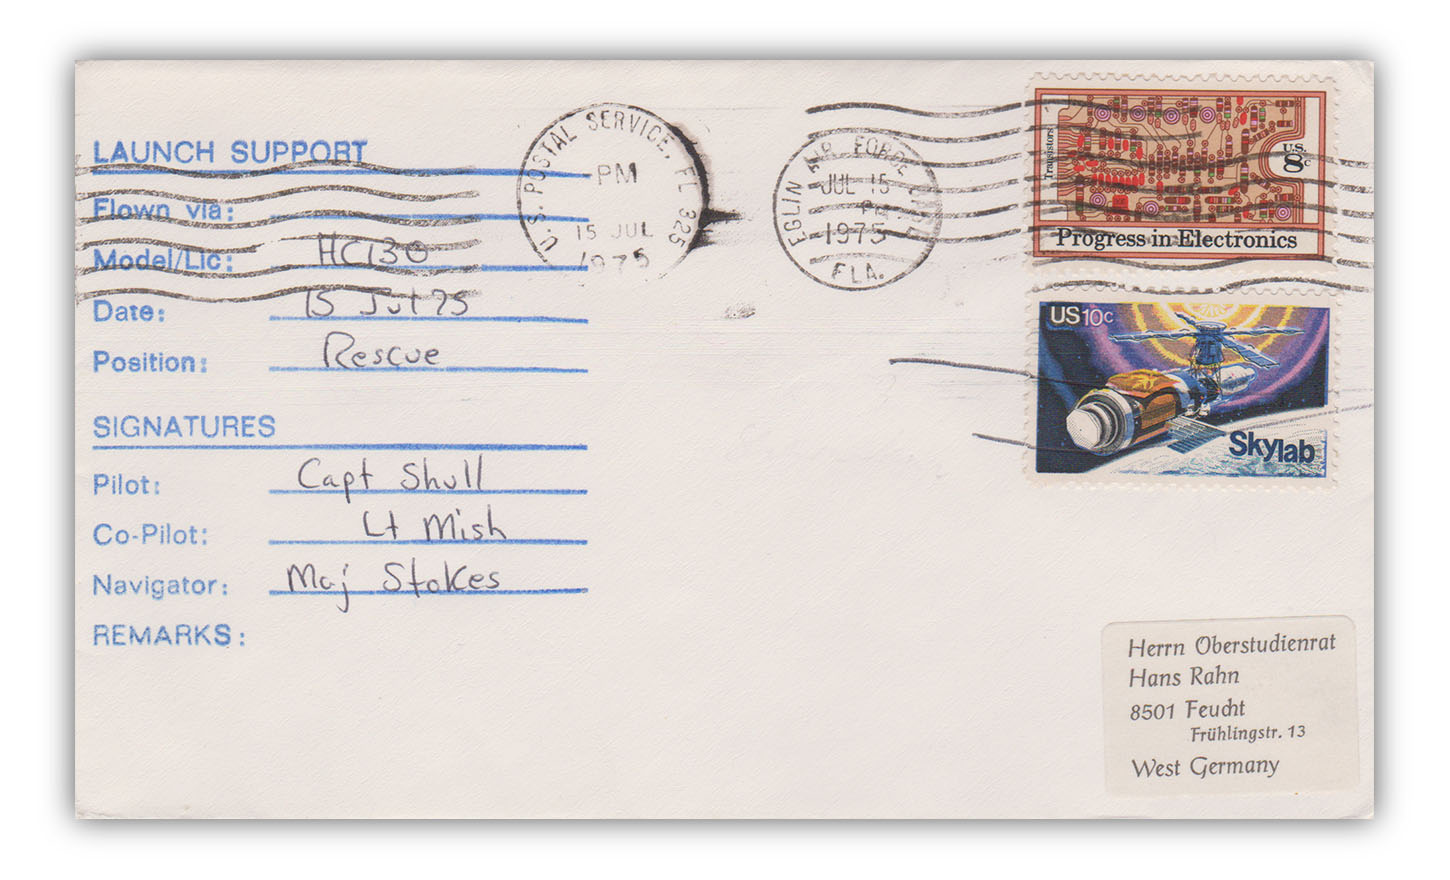 LAUNCH SUPPORT
Flown via:
Model/Lic: HC130
Date: 15 Jul 75
Position: Rescue
SIGNATURES
Pilot: Capt Shull
Co-Pilot: Lt Mish
Navigator: Maj Stokes
REMARKS:
U.S. POSTAL SERVICE, FL 325
PM
15 JUL
1975
EGLIN AIR FORCE
JUL 15
PM
1975
FLA.
Transistors
U.S.
8c
Progress in Electronics
US 10c
Skylab
Herrn Oberstudienrat
Hans Rahn
8501 Feucht
Frühlingstr. 13
West Germany